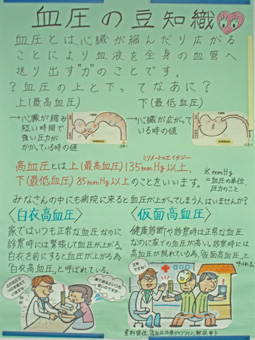 血圧の豆知識
血圧とは、心臓が縮んだり広がる
ことにより血液を全身の血管へ
送り出す"力"のことです。
?血圧の上と下ってなあに?
上(最高血圧)
→心臓が縮み
短い時間で
強い圧力が
かかっている時の値
下(最低血圧)
→心臓が広がって
いる時の値
高血圧とは上(最高血圧)135mmHg以上、
ミリメートルエイチジー
下(最低血圧)85mmHg以上のことをいいます。
※mmHg
=血圧の単位
圧力のこと
みなさんの中にも病院に来ると血圧が上がってしまう人はいませんか?
〈白衣高血圧〉
家ではいつも正常な血圧なのに
診察時には緊張して血圧が上がる。
白衣を前にすると血圧が上がる為
「白衣高血圧」と呼ばれている。
〈仮面高血圧〉
健康診断や診察時は正常な血圧
なのに家での血圧が高い。診察時には
高血圧が隠れている為、「仮面高血圧」と
呼ばれる